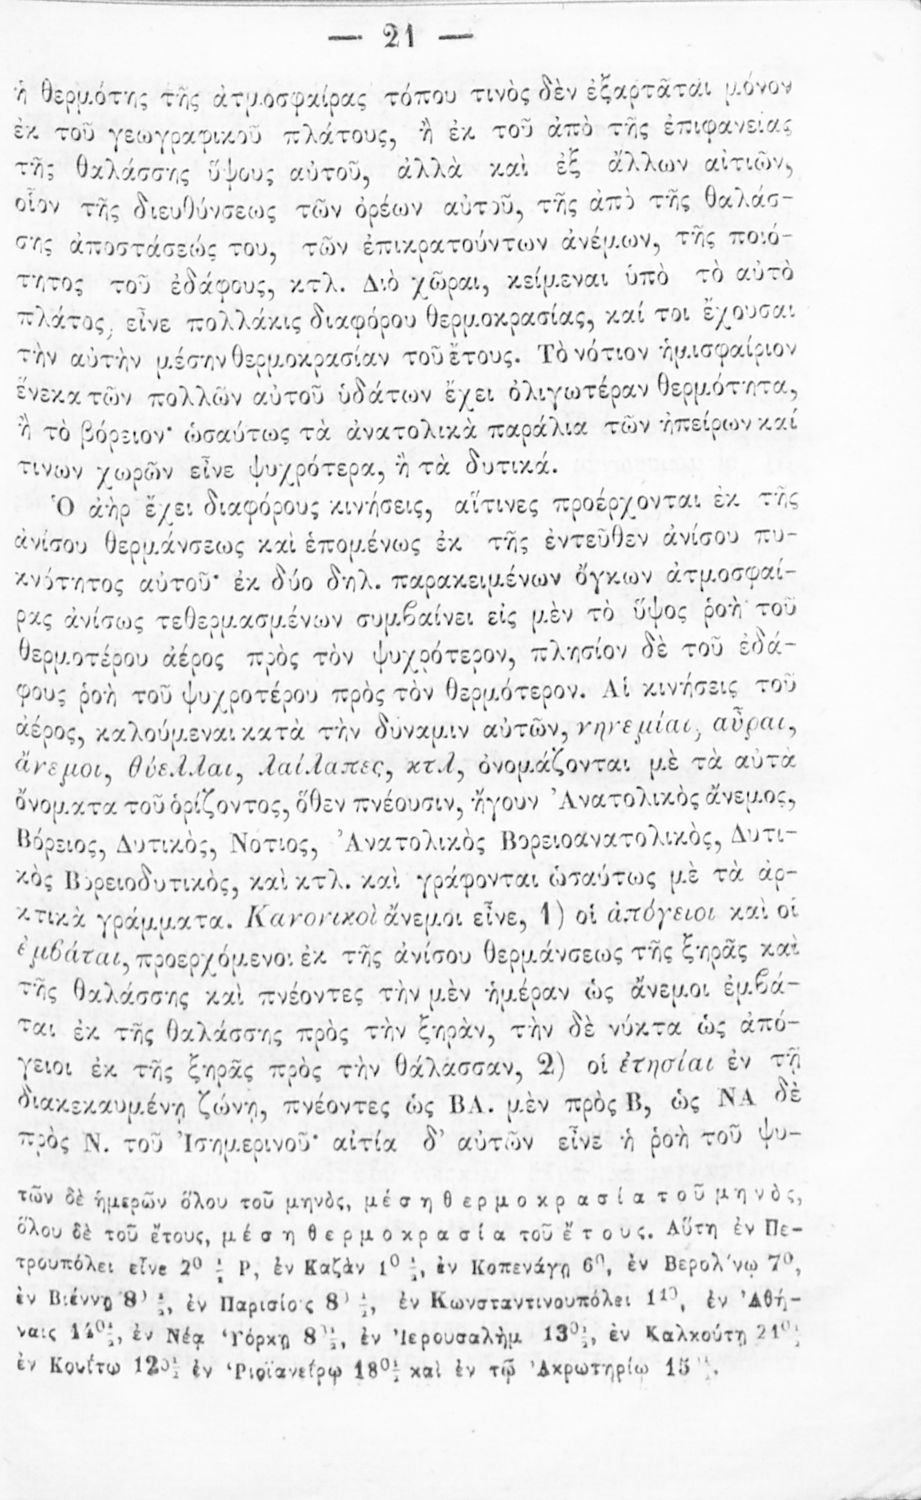 — 21 —
ἡ θερμότης τῆς ἀτμοσφαίρας τόπου τινὸς δὲν ἐξαρτᾶται μόνον
ἐκ τοῦ γεωγραφικοῦ πλάτους, ἢ ἐκ τοῦ ἀπὸ τῆς ἐπιφανείας
τῆς θαλάσσης ὕψους αὐτοῦ, ἀλλὰ καὶ ἐξ ἄλλων αἰτιῶν,
οἷον τῆς διευθύνσεως τῶν ὀρέων αὐτοῦ, τῆς ἀπὸ τῆς θαλάσ-
σης ἀποστάσεώς του, τῶν ἐπικρατούντων ἀνέμων, τῆς ποιό-
τητος τοῦ ἐδάφους, κτλ. Διὸ χῶραι, κείμεναι ὑπὸ τὸ αὐτὸ
πλάτος, εἶνε πολλάκις διαφόρου θερμοκρασίας, καί τοι ἔχουσαι
τὴν αὐτὴν μέσην θερμοκρασίαν τοῦ ἔτους. Τὸ νότιον ἡμισφαίριον
ἕνεκα τῶν πολλῶν αὐτοῦ ὑδάτων ἔχει ὀλιγωτέραν θερμότητα,
ἢ τὸ βόρειον· ὡσαύτως τὰ ἀνατολικὰ παράλια τῶν ἠπείρων καί
τινων χωρῶν εἶνε ψυχρότερα, ἢ τὰ δυτικά.
Ὁ ἀὴρ ἔχει διαφόρους κινήσεις, αἵτινες προέρχονται ἐκ τῆς
ἀνίσου θερμάνσεως καὶ ἑπομένως ἐκ τῆς ἐντεῦθεν ἀνίσου πυ-
κνότητος αὐτοῦ· ἐκ δύο δηλ. παρακειμένων ὄγκων ἀτμοσφαί-
ρας ἀνίσως τεθερμασμένων συμβαίνει εἰς μὲν τὸ ὕψος ῥοὴ τοῦ
θερμοτέρου ἀέρος πρὸς τὸν ψυχρότερον, πλησίον δὲ τοῦ ἐδά-
φους ῥοὴ τοῦ ψυχροτέρου πρὸς τὸν θερμότερον. Αἱ κινήσεις τοῦ
ἀέρος, καλούμεναι κατὰ τὴν δύναμιν αὐτῶν, νηνεμίαι, αὖραι,
ἄνεμοι, θύελλαι, λαίλαπες, κτλ, ὀνομάζονται μὲ τὰ αὐτὰ
ὄνοματα τοῦ ὁρίζοντος, ὅθεν πνέουσιν, ἤγουν Ἀνατολικὸς ἄνεμος,
Βόρειος, Δυτικὸς, Νότιος, Ἀνατολικὸς Βορειοανατολικὸς, Δυτι-
κὸς Βορειοδυτικὸς, καὶ κτλ. καὶ γράφονται ὡσαύτως μὲ τὰ ἀρ-
κτικὰ γράμματα. Κανονικοὶ ἄνεμοι εἶνε, 1) οἱ ἀπόγειοι καὶ οἱ
ἐμβάται, προερχόμενοι ἐκ τῆς ἀνίσου θερμάνσεως τῆς ξηρᾶς καὶ
τῆς θαλάσσης καὶ πνέοντες τὴν μὲν ἡμέραν ὡς ἄνεμοι ἐμβά-
ται ἐκ τῆς θαλάσσης πρὸς τὴν ξηρὰν, τὴν δὲ νύκτα ὡς ἀπό-
γειοι ἐκ τῆς ξηρᾶς πρὸς τὴν θάλασσαν, 2) οἱ ἐτησίαι ἐν τῇ
διακεκαυμένῃ ζώνῃ, πνέοντες ὡς ΒΑ. μὲν πρὸς Β, ὡς ΝΑ δὲ
πρὸς Ν. τοῦ Ἰσημερινοῦ· αἰτία δ' αὐτῶν εἶνε ἡ ῥοὴ τοῦ ψυ-
τῶν δὲ ἡμερῶν ὅλου τοῦ μηνὸς, μέση θερμοκρασία τοῦ μηνὸς,
ὅλου δὲ τοῦ ἔτους, μέση θερμοκρασία τοῦ ἔτους. Αὕτη ἐν Πε-
τρουπόλει εἶνε 2⁰ ½ Ρ, ἐν Καζὰν 1⁰ ½, ἐν Κοπενάγῃ 6⁰, ἐν Βερολίνῳ 7⁰,
ἐν Βιέννῃ 8⁰ ½, ἐν Παρισίοις 8⁰ ½, ἐν Κωνσταντινουπόλει 11⁰, ἐν Ἀθή-
ναις 14⁰½, ἐν Νέᾳ Ὑόρκῃ 8⁰½, ἐν Ἱερουσαλὴμ 13⁰½, ἐν Καλκούτῃ 21⁰½
ἐν Κουίτῳ 12⁰½ ἐν Ῥιοϊανείρῳ 18⁰½ καὶ ἐν τῷ Ἀκρωτηρίῳ 15